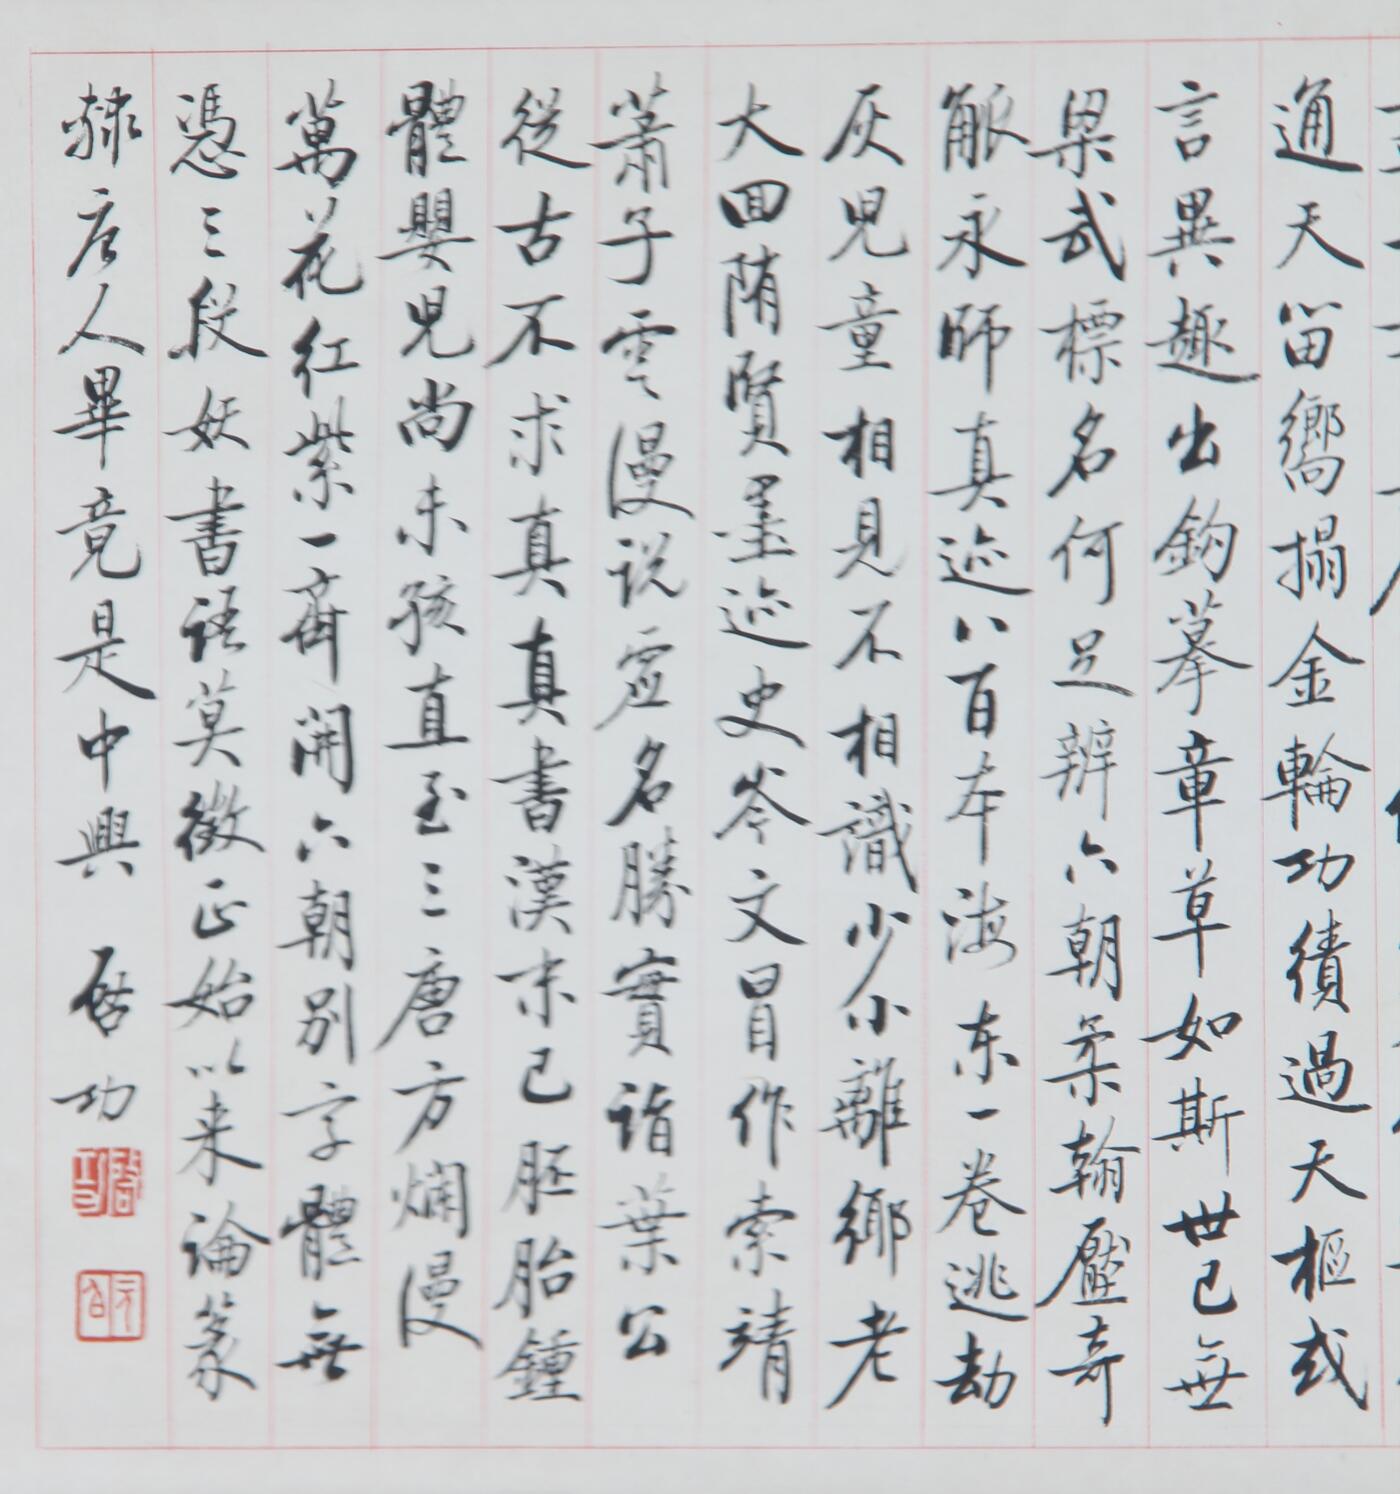 通天留響搨金輪功績過天樞或
言異趣出鈎摹章草如斯世已無
梁武標名何足辨六朝柔翰壓奇
觚永師真迹八百本海东一卷逃劫
灰児童相見不相識少小離鄉老
大回隋賢墨迹史岑文冒作索靖
蕭子雲漫说虚名勝實詣葉公
從古不求真真書漢末已胚胎鍾
體嬰児尚未孩直至三唐方爛漫
萬花红紫一齊開六朝别字體無
憑三段妖書語莫徵正始以来論篆
隸唐人畢竟是中興 啓功